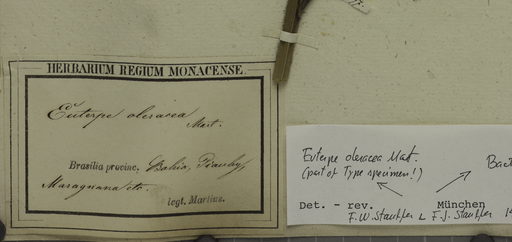 HERBARIUM REGIUM MONACENSE.
Euterpe oleracea
Mart.
Brasilia provinc. Bahia, Piauhy,
Maragnana etc.
legt. Martius.
Euterpe oleracea Mart.
(part of Type specimen!)
Bact
Det. - rev. München
F.W. Stauffer & F.J. Stauffer 14